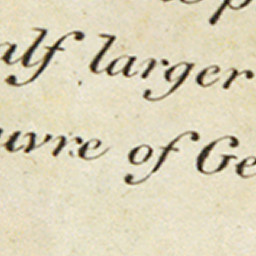 alf larger
uvre of Ge